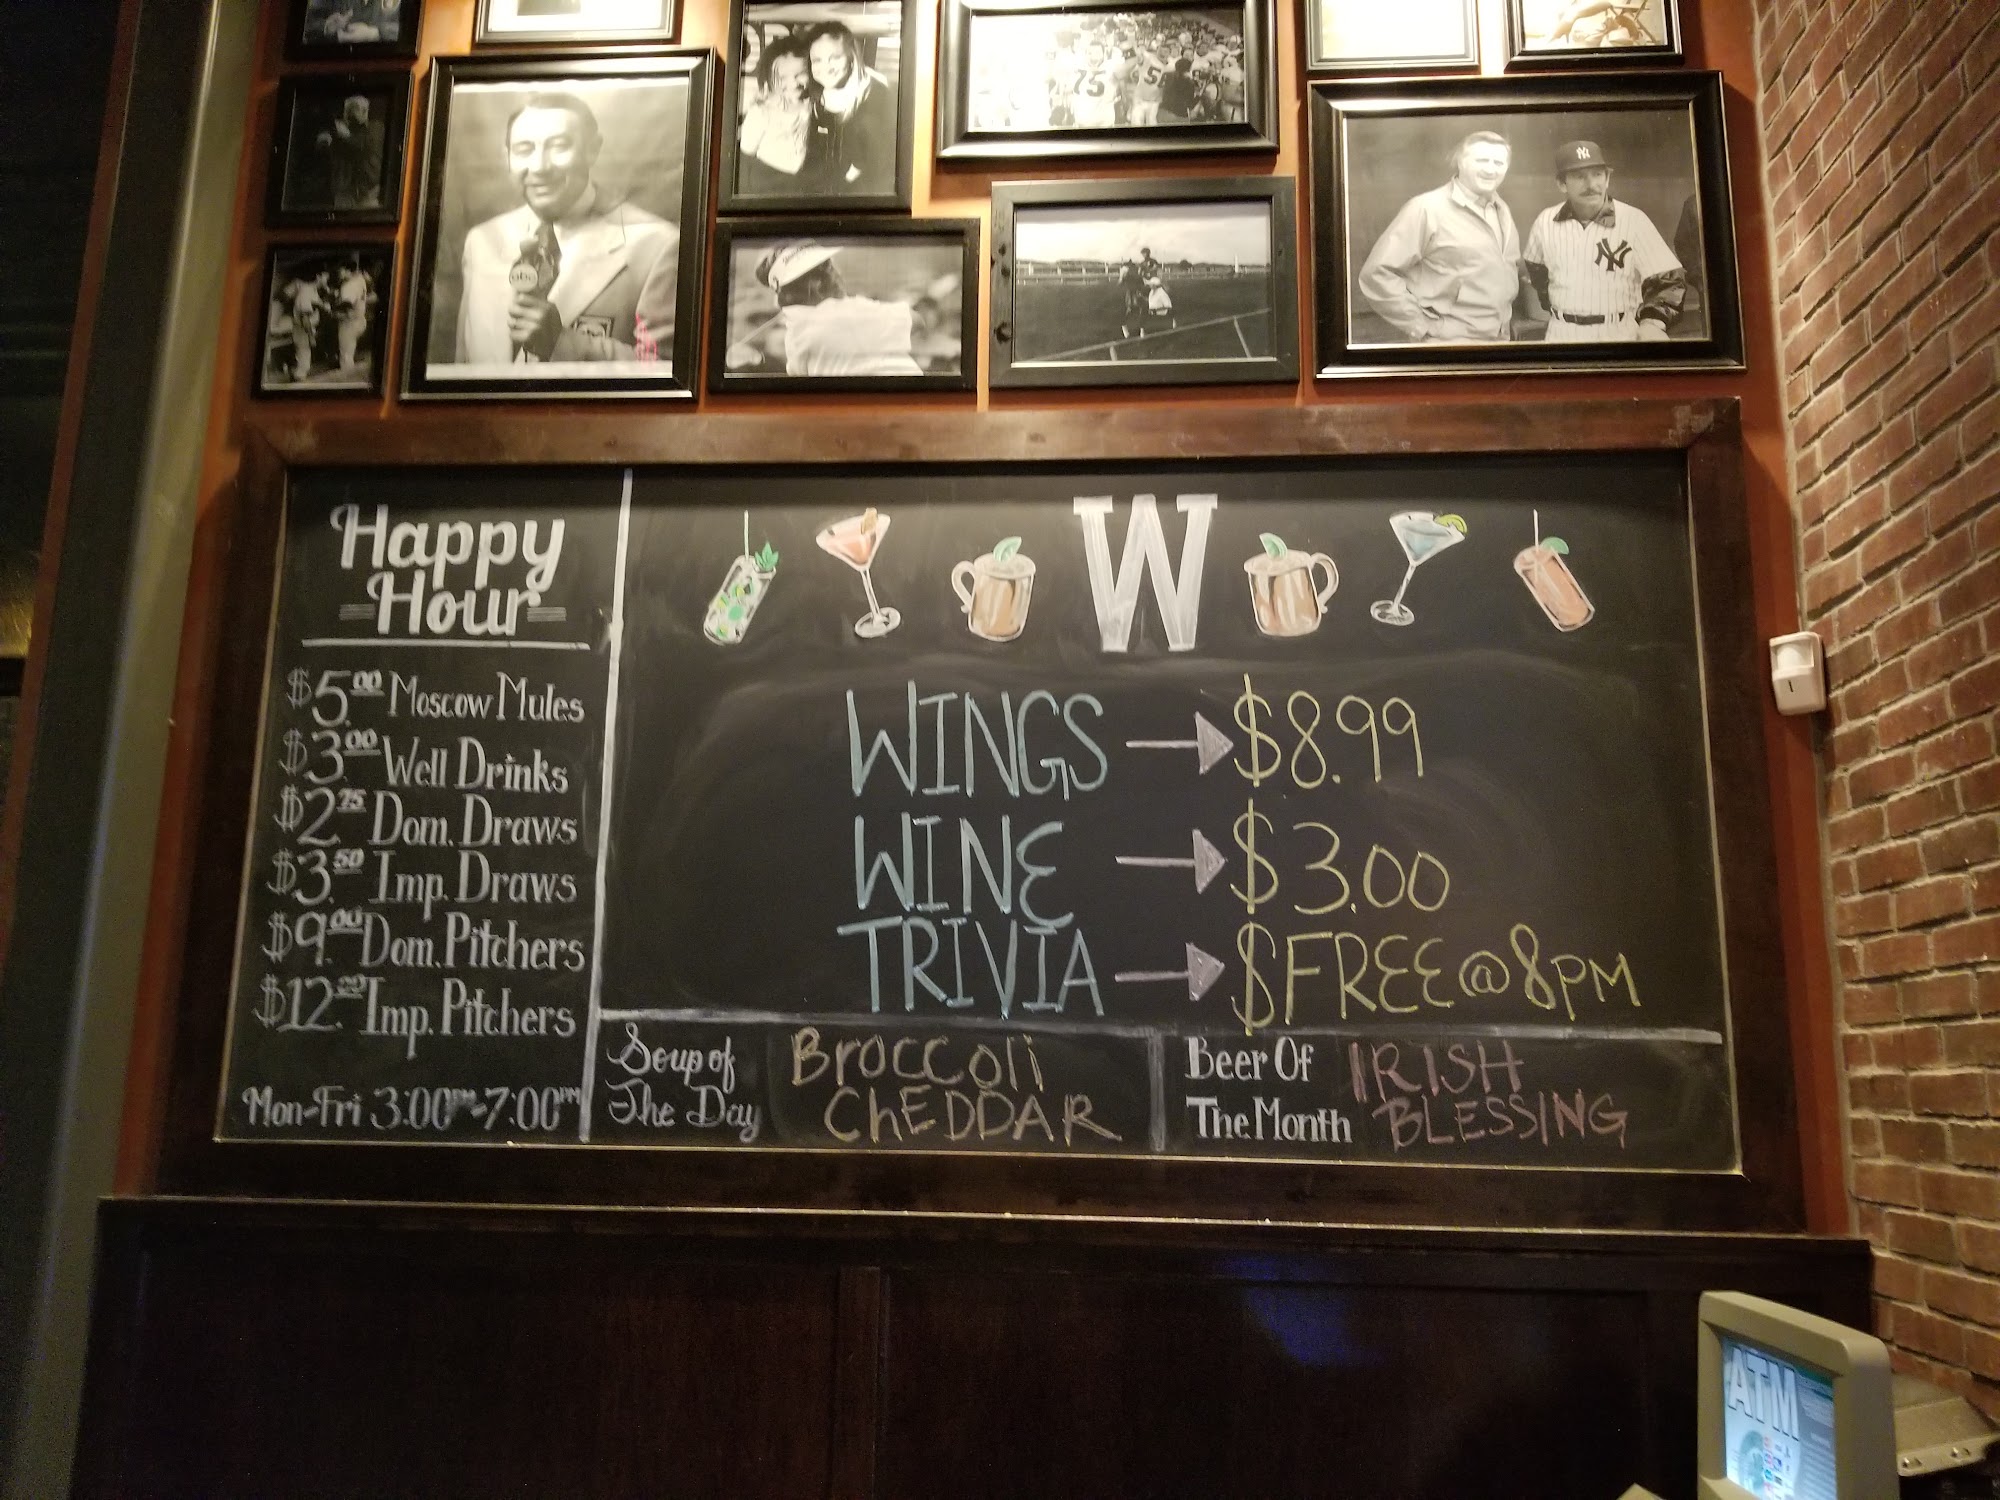 abc
75
5
NY
NY
Happy
Hour
$5.00 Moscow Mules
$3.00 Well Drinks
$2.75 Dom. Draws
$3.50 Imp. Draws
$9.00 Dom. Pitchers
$12.00 Imp. Pitchers
Mon-Fri 3:00PM-7:00PM
W
WINGS → $8.99
WINE → $3.00
TRIVIA → $FREE @ 8PM
Soup of
The Day
BROCCOli
ChEDDAR
Beer Of
The Month
IRISH
BLESSING
ATM